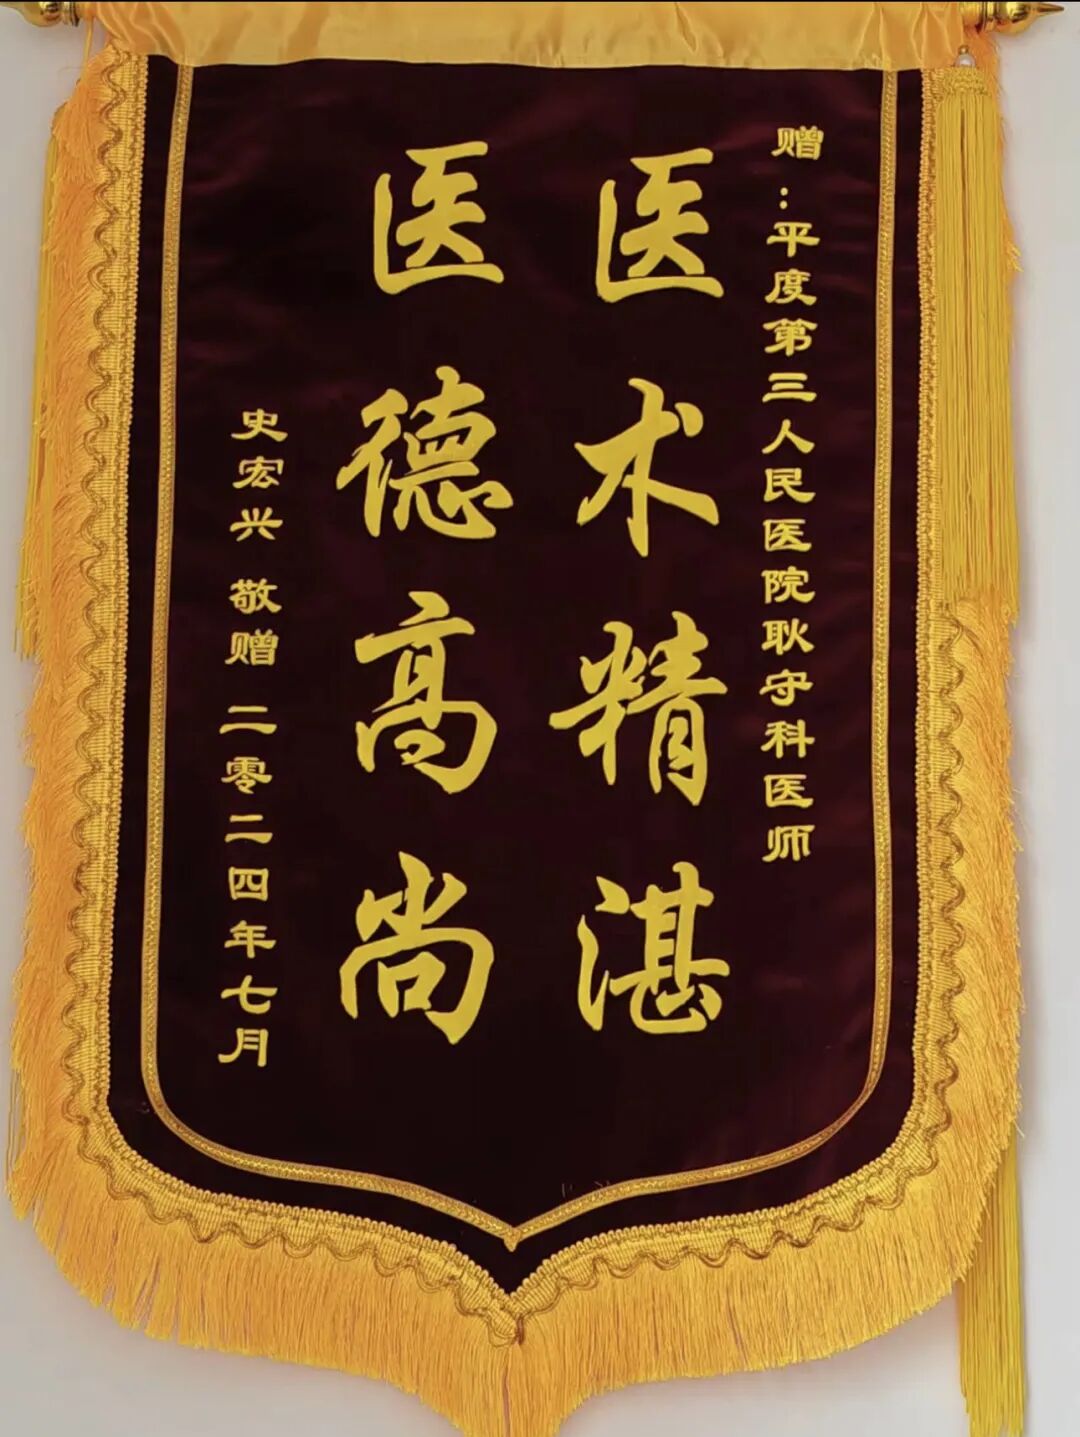 赠：平度第三人民医院耿守科医师
医术精湛
医德高尚
史宏兴 敬赠 二零二四年七月